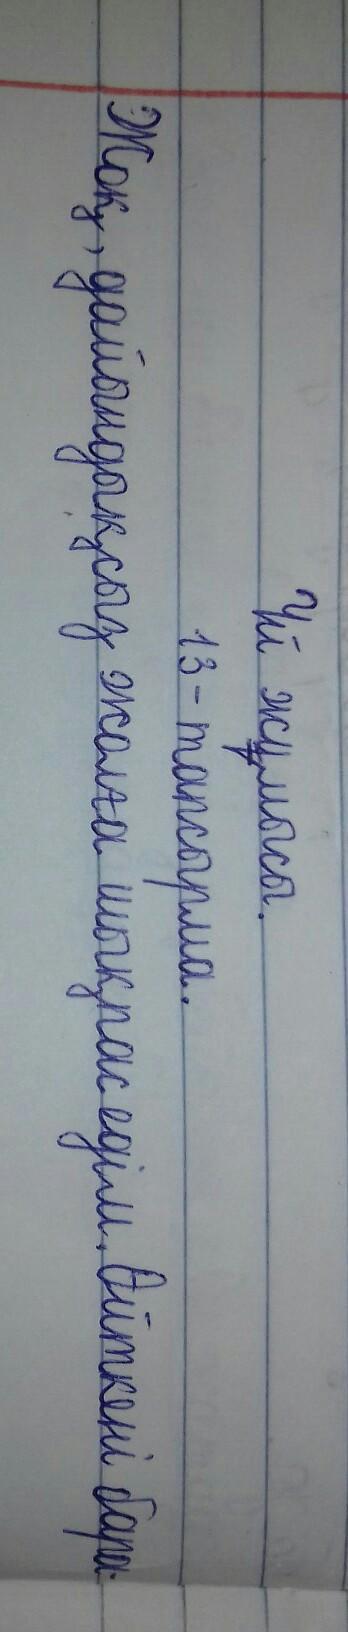 Үй жұмысы.
13-тапсырма.
Жоқ, дайындықсыз жолға шықпас едім. Өйткені бара